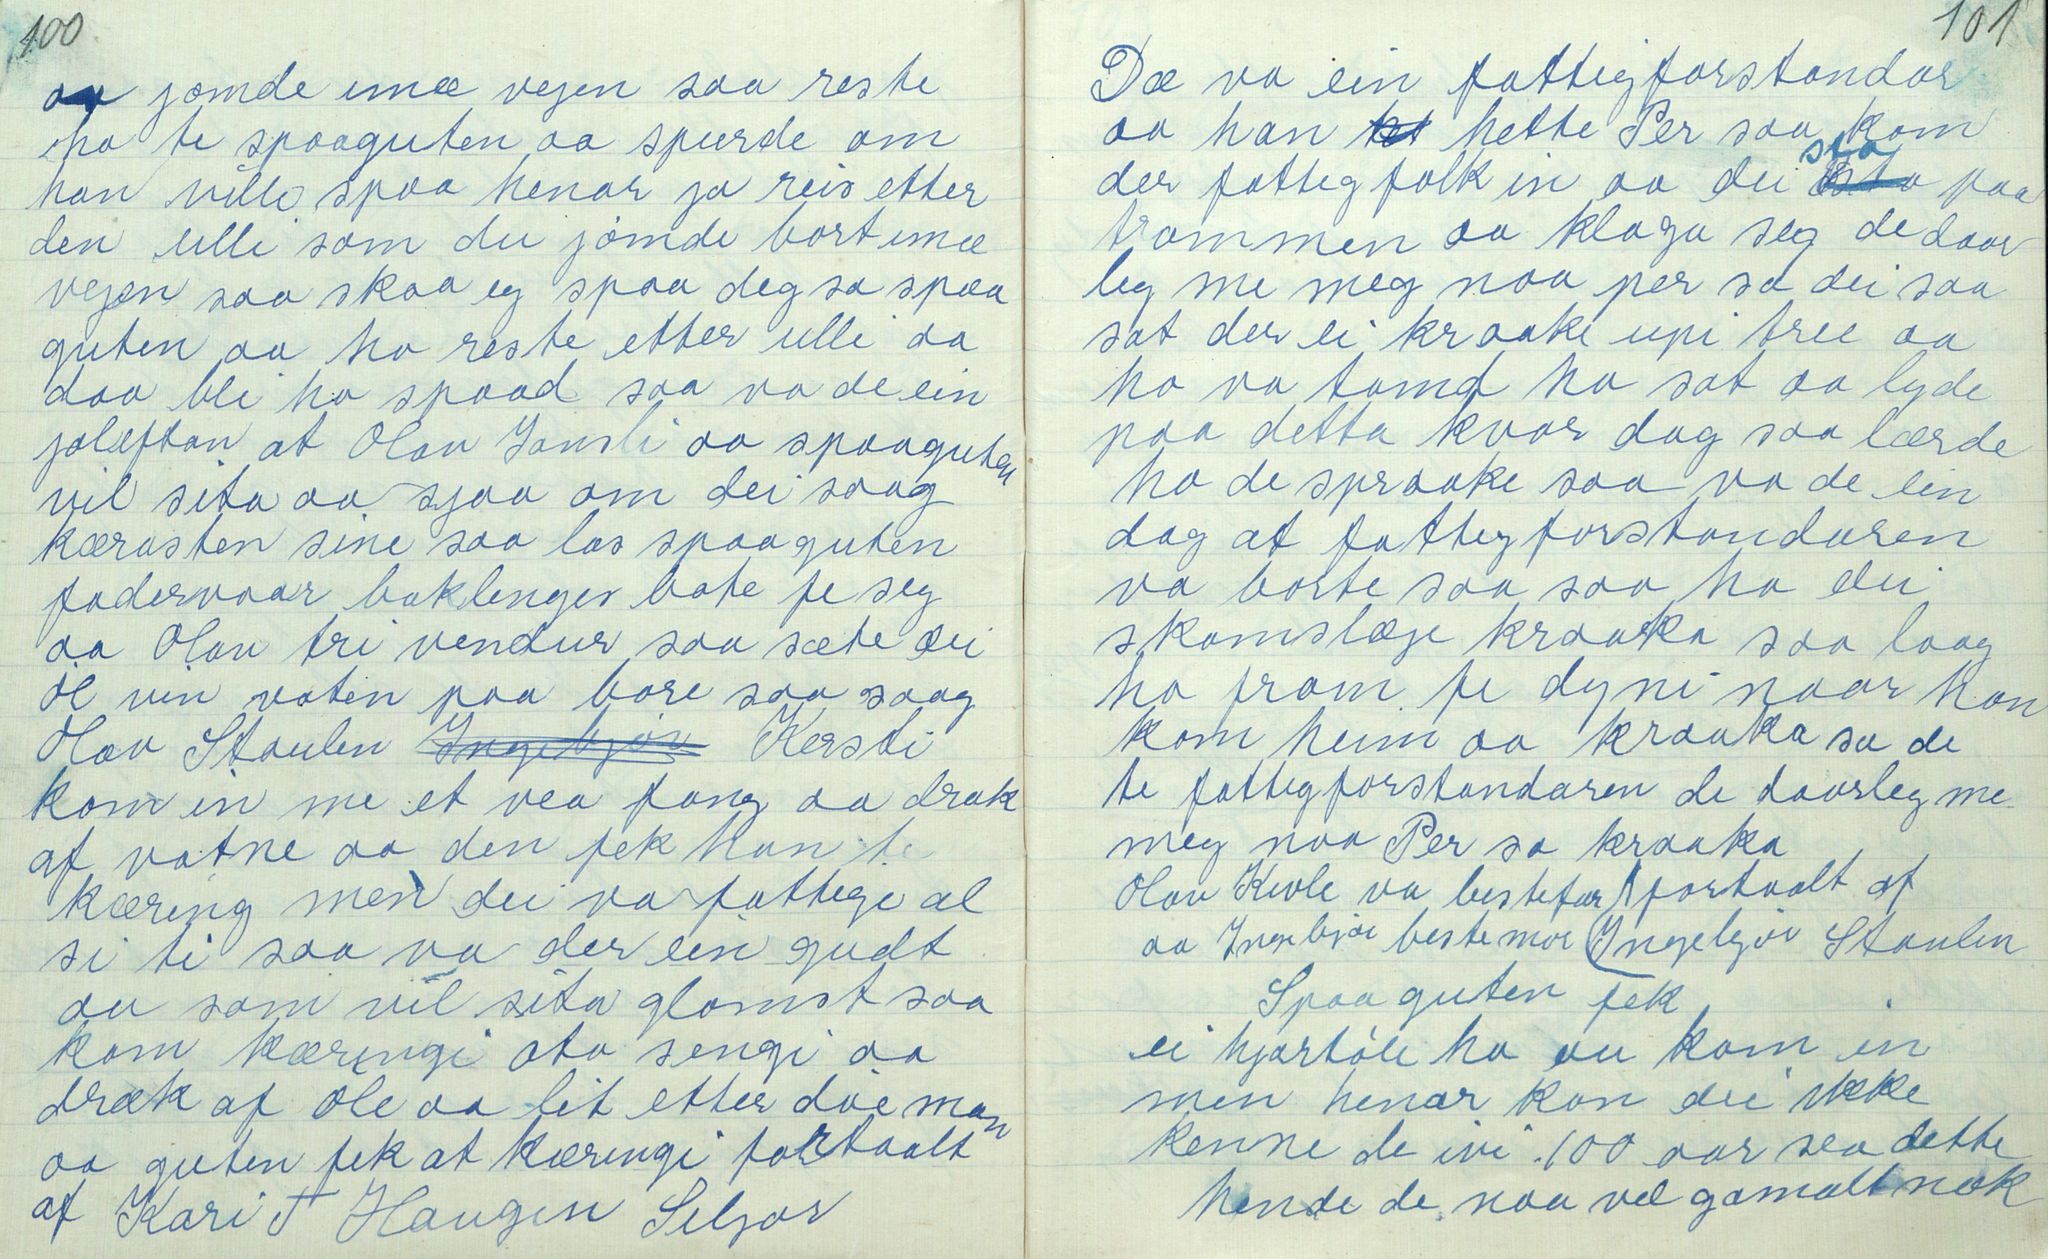 100
aa jømde imæ vejen saa reste
ho te spaaguten aa spurde om
han ville spaa henar ja reis etter
den ulli som du jømde bort imæ
vejen saa skaa eg spaa deg sa spaa
guten aa ho reste etter ulli aa
daa blei ho spaad saa va de ein
jolæftan at Olav Jamsli aa spaaguten
vil sita aa sjaa om dei saag
kærasten sine saa las spaaguten
fadervaar baklenges bate fe seg
aa Olav tri vendur saa sæte dei
øl vin vaten paa bore saa saag
Olav Staulen Kersti
kom in me et vea fang aa drak
af vatne aa den fek han te
kæring men dei va fattige al
si ti saa va der ein gudt
au som vil sita glomst saa
kom kæringi ata sengi aa
dræk af øle aa leit etter døe man
aa guten fek at kæringi fortaalt
af Kari T Haugen Seljor
101
Dæ va ein fattigforstandar
aa han hette Per saa kom
der fattigfolk in aa dei sto paa
trammen aa klaga seg de daar
leg me meg naa per sa dei saa
sat der ei kraake upi tree aa
ho va tamd ho sat aa lyde
paa detta kvar dag saa lærde
ho de spraake saa va de ein
dag at fattigforstandaren
va borte saa saa ho ei
skamslæge kraaka saa laag
ho fram fe dyni naar han
kom heim aa kraaka sa de
te fattigforstandaren de daarleg me
meg naa Per sa kraaka
Olav Kivle va bestefar fortaalt af
aa Ingebjør bestemor Ingebjør Staulen
Spaaguten fek
ei hjartdøle ho au kom in
men henar kan dei ikke
kenne de ivi 100 aar sea dette
hende de naa vel gamalt nok